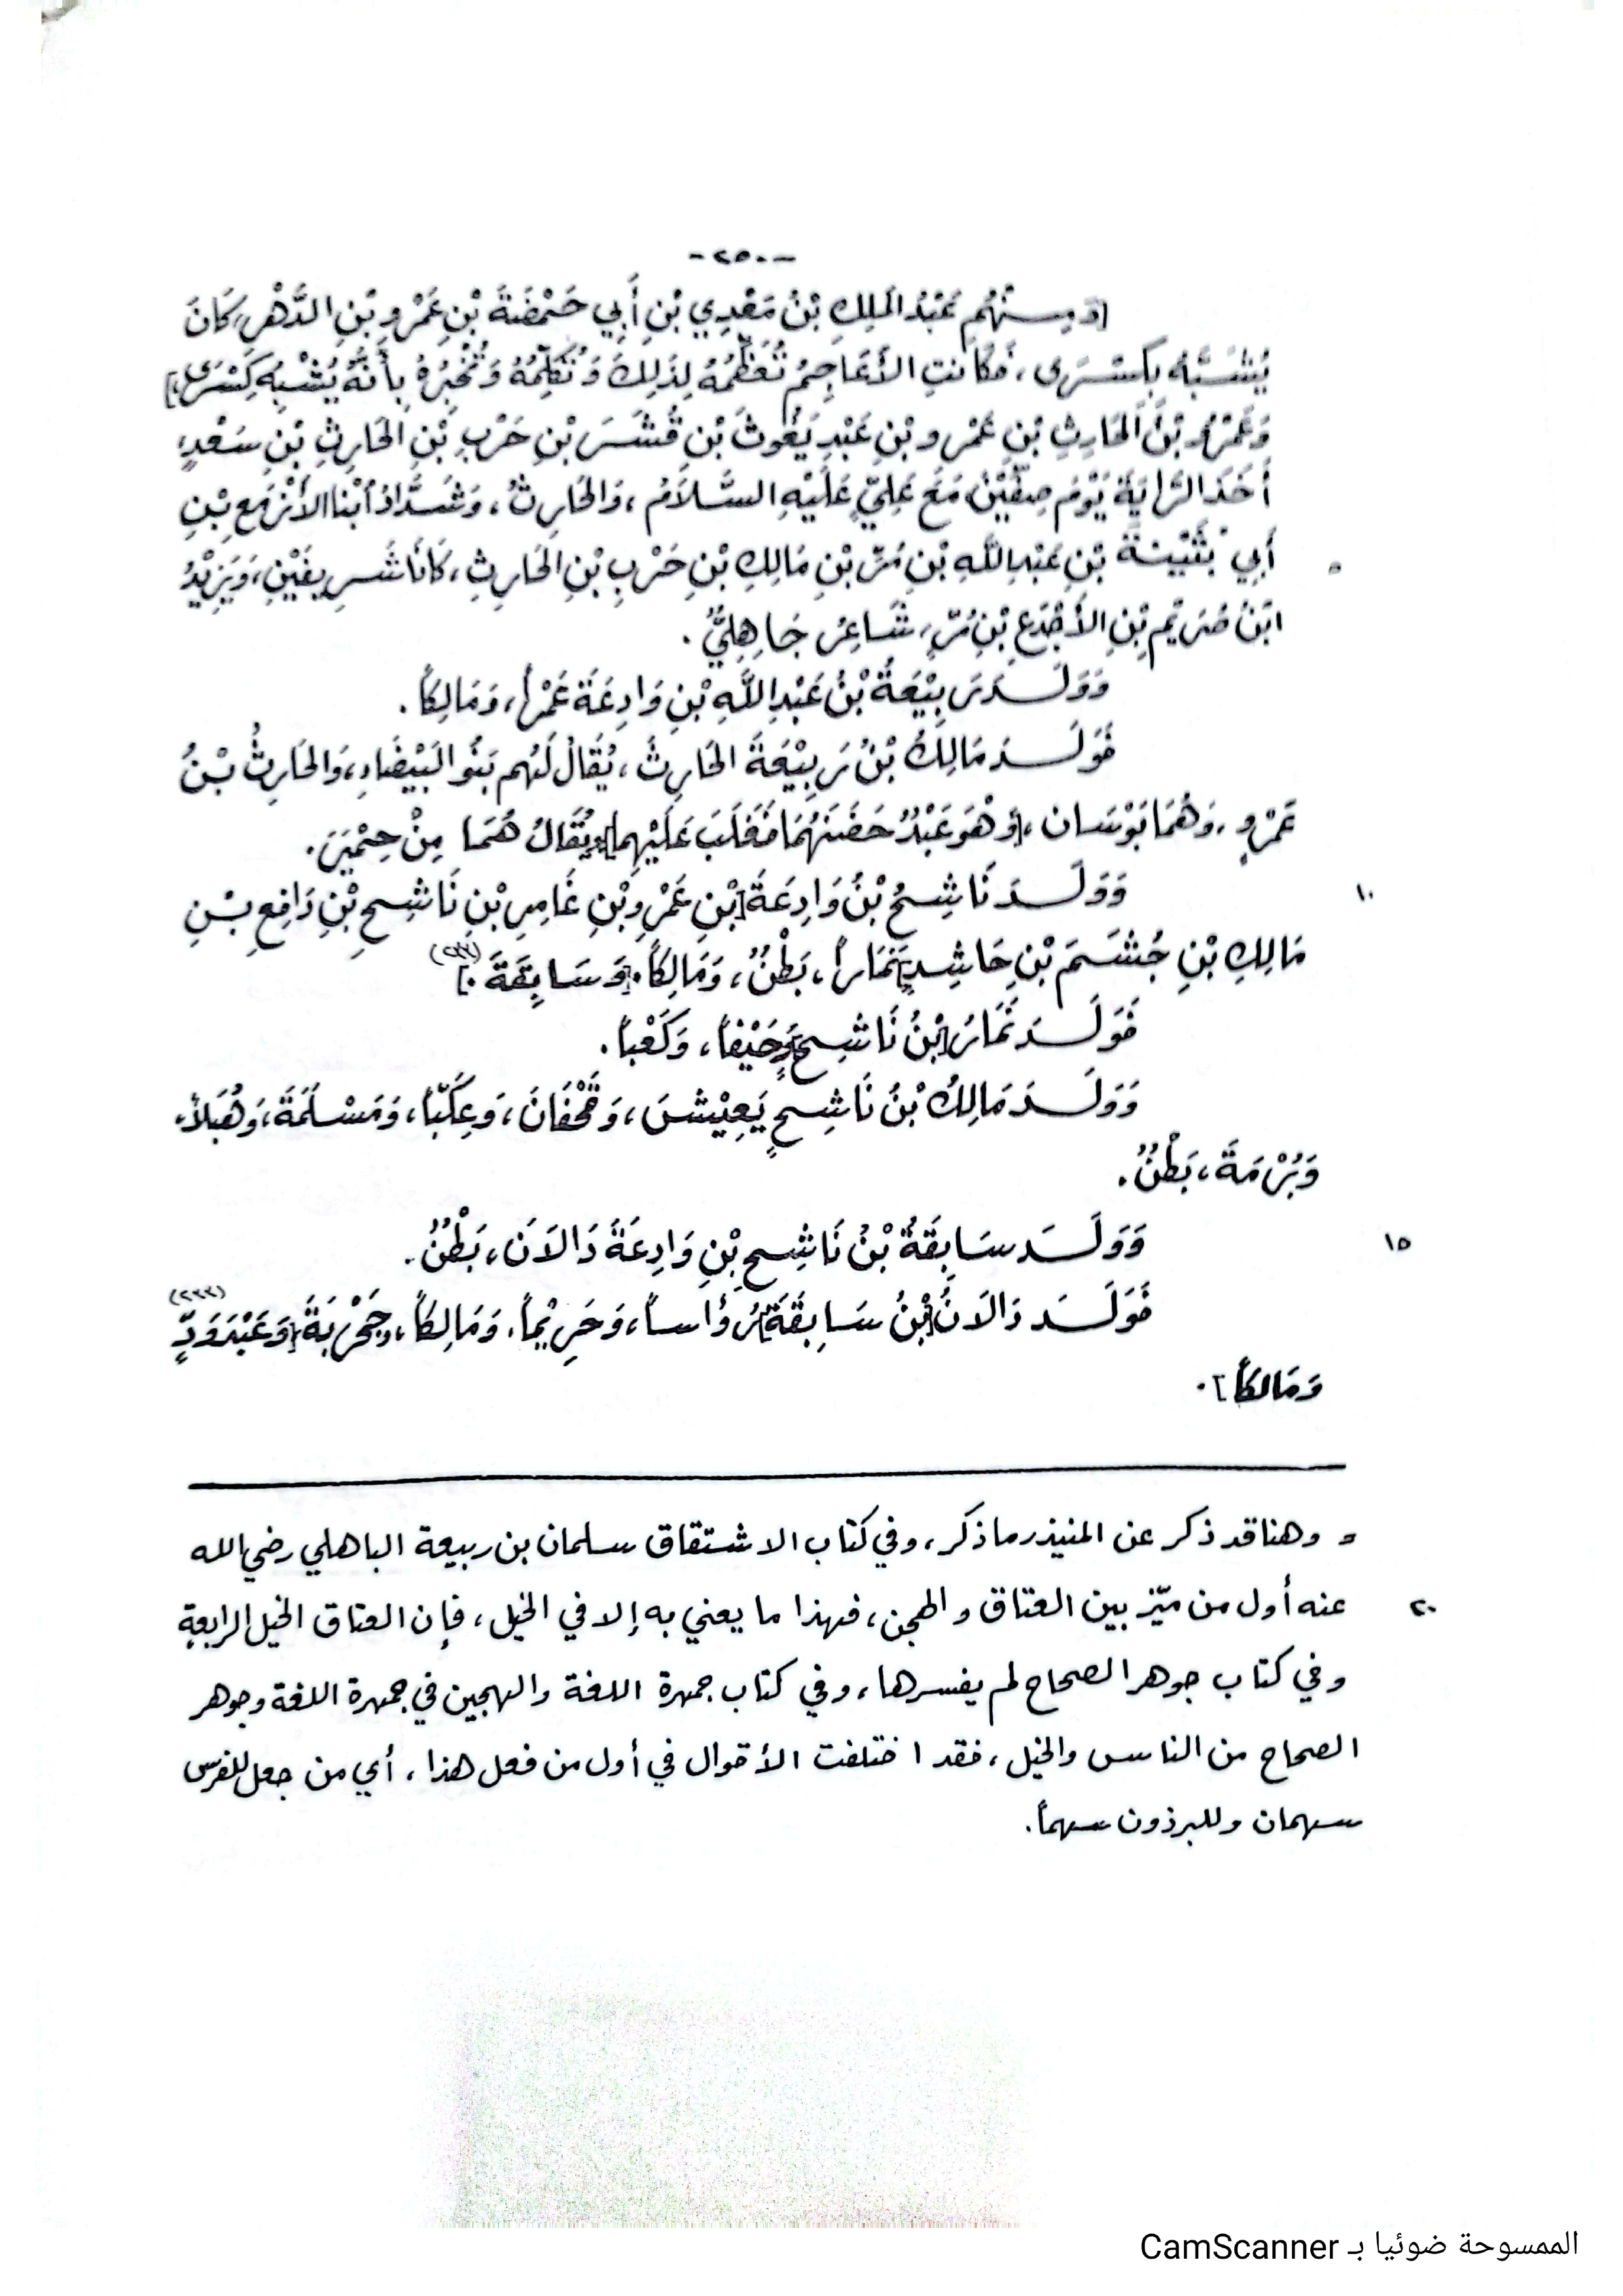 -٢٥٠-
[وَمِنْهُم عَبْدُ المَلِكِ بْنُ مَعْدِي بْنِ أَبِي حَمْضَةَ بْنِ عَمْرِو بْنِ الدَّهْرِ، كَانَ
يُشَبَّهُ بِكِسْرَى، فَكَانَتِ الأَعَاجِمُ تُعَظِّمُهُ لِذَلِكَ وَتُكَلِّمُهُ وَتُخْبِرُهُ بِأَنَّهُ يُشْبِهُ كِسْرَى.]
وَعَمْرُو بْنُ الحَارِثِ بْنِ عَمْرِو بْنِ عَبْدِ يَغُوثَ بْنِ قُشَسَرَ بْنِ حَرْبِ بْنِ الحَارِثِ بْنِ سَعْدٍ،
أَخَذَ الرَّايَةَ يَوْمَ صِفِّيْنَ مَعَ عَلِيٍّ عَلَيْهِ السَّلاَمُ، وَالحَارِثُ، وَشَدَّادُ أبْنَا الأَزْمَعِ بْنِ
٥ أَبِي بُثَيْنَةَ بْنِ عَبْدِ اللَّهِ بْنِ مُرِّ بْنِ مَالِكِ بْنِ حَرْبِ بْنِ الحَارِثِ، كَانَا شَرِيفَيْنِ، وَيَزِيْدُ
ابْنُ صَرِيْمِ بْنِ الأَجْدَعِ بْنِ مُرٍّ، شَاعِرٌ جَاهِلِيٌّ.
وَوَلَدَ رَبِيْعَةُ بْنُ عَبْدِ اللَّهِ بْنِ وَادِعَةَ عَمْراً، وَمَالِكاً.
فَوَلَدَ مَالِكُ بْنُ رَبِيْعَةَ الحَارِثَ، يُقَالُ لَهُم بَنُو البَيْضَاءِ، وَالحَارِثُ بْنُ
عَمْرٍو، وَهُمَا بَوْسَان، [وَهْوَ عَبْدٌ حَضَنَهُمَا فَغَلَبَ عَلَيْهِمَا] وَيُقَالُ هُمَا مِنْ حِمْيَرَ.
١٠ وَوَلَدَ نَاشِحُ بْنُ وَادِعَةَ [بْنِ عَمْرِو بْنِ عَامِرِ بْنِ نَاشِحِ بْنِ دَافِعِ بْنِ
مَالِكِ بْنِ جُشَمَ بْنِ حَاشِدٍ] نَمَاراً، بَطْنٌ، وَمَالِكاً. [وَسَابِقَةَ.]
فَوَلَدَ نَمَارُ [بْنُ نَاشِحٍ] وَحَيْفاً، وَكَعْباً.
وَوَلَدَ مَالِكُ بْنُ نَاشِحٍ يَعِيْشَ، وَقُحْفَانَ، وَعِكَبّاً، وَمَسْلَمَةَ، وَهُبَلاً،
وَبُرْمَةَ، بَطْنٌ.
١٥ وَوَلَدَ سَابِقَةُ بْنُ نَاشِحِ بْنِ وَادِعَةَ دَالاَنَ، بَطْنٌ.
فَوَلَدَ دَالاَنُ [بْنُ سَابِقَةَ] رُؤَاساً، وَحَرِيْماً، وَمَالِكاً، وَجَحْرَبَةَ [وَعَبْدَ وَدٍّ (٢٣٣)
وَمَالكاً].
= وهنا قد ذكر عن المنيذر ما ذكر، وفي كتاب الاشتقاق سلمان بن ربيعة الباهلي رضي الله
٢٠ عنه أول من ميّز بين العتاق والهجن، فهذا ما يعني به إلا في الخيل، فإن العتاق الخيل الرابعة
وفي كتاب جوهر الصحاح لم يفسرها، وفي كتاب جمهرة اللغة والهجين في جمهرة اللغة وجوهر
الصحاح من الناس والخيل، فقد اختلفت الأقوال في أول من فعل هذا، أي من جعل للفرس
سهمان وللبرذون سهماً.
الممسوحة ضوئيا بـ CamScanner